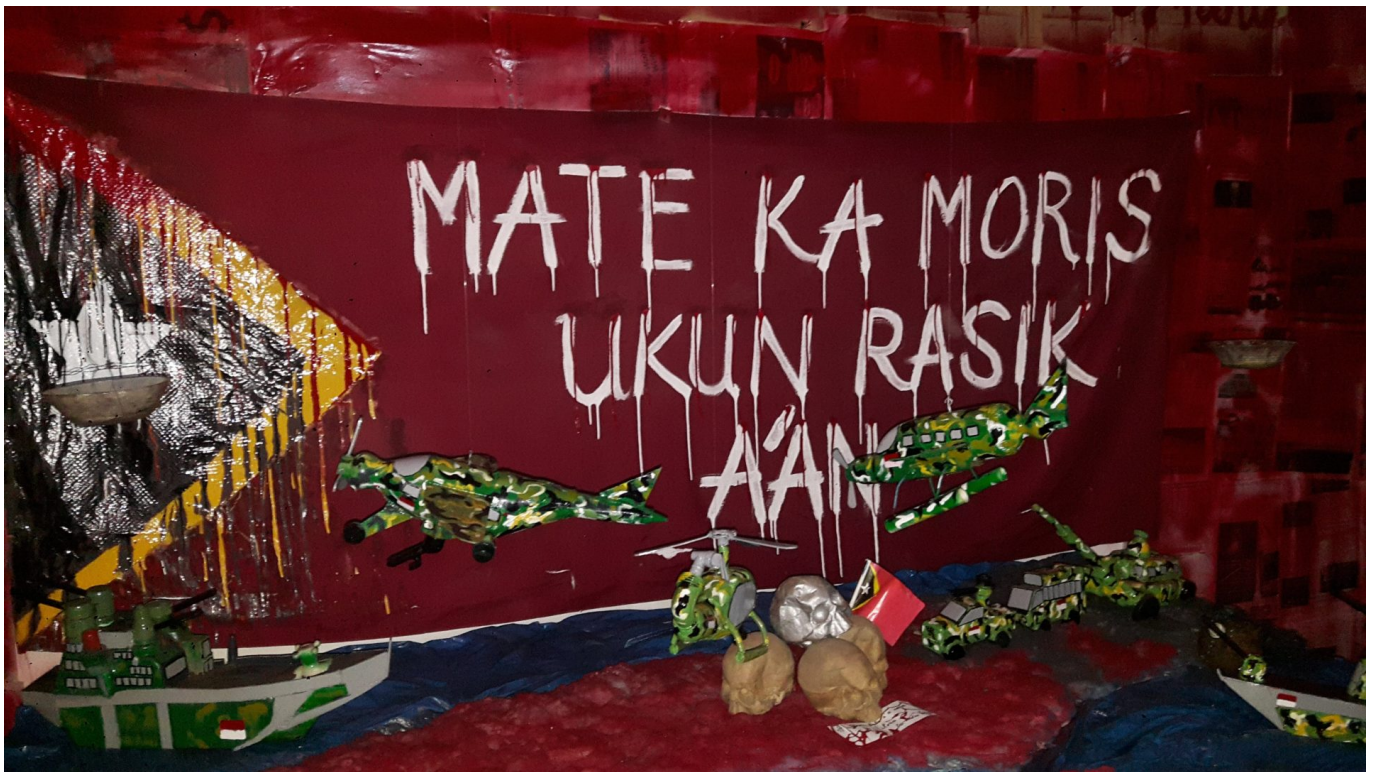 MATE KA MORIS
UKUN RASIK
ÁÁN